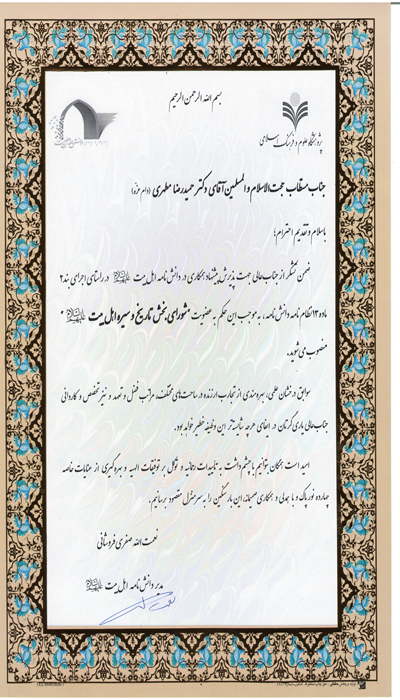 بسم الله الرحمن الرحیم
پژوهشگاه علوم و فرهنگ اسلامی
جناب مستطاب حجت الاسلام والمسلمین آقای دکتر حمیدرضا مطهری (دام عزه)
باسلام و تقدیم احترام؛
ضمن تشکر از جنابعالی جهت پذیرش پیشنهاد همکاری در دانش نامه اهل بیت در راستای اجرای بند ۲
ماده ۱۳ نظام نامه دانش نامه، به موجب این حکم به عضویت "شورای بخش تاریخ و سیره اهل بیت"
منصوب می شوید.
سوابق درخشان علمی، بهره مندی از تجارب ارزنده در ساحت های مختلف، مراتب فضل و تعهد و نیز تخصص و کاردانی
جنابعالی یاری گرتان در ایفای هرچه شایسته تر این وظیفه خطیر خواهد بود.
امید است همگان بتوانیم با چشم داشت به تأییدات رحمانیه و توکل بر توفیقات الهیه و بهره گیری از عنایات خاصه
چهارده نور پاک و با همدلی و همکاری صمیمانه، این بار سنگین را به سرمنزل مقصود برسانیم.
نعمت الله صفری فروشانی
مدیر دانش نامه اهل بیت